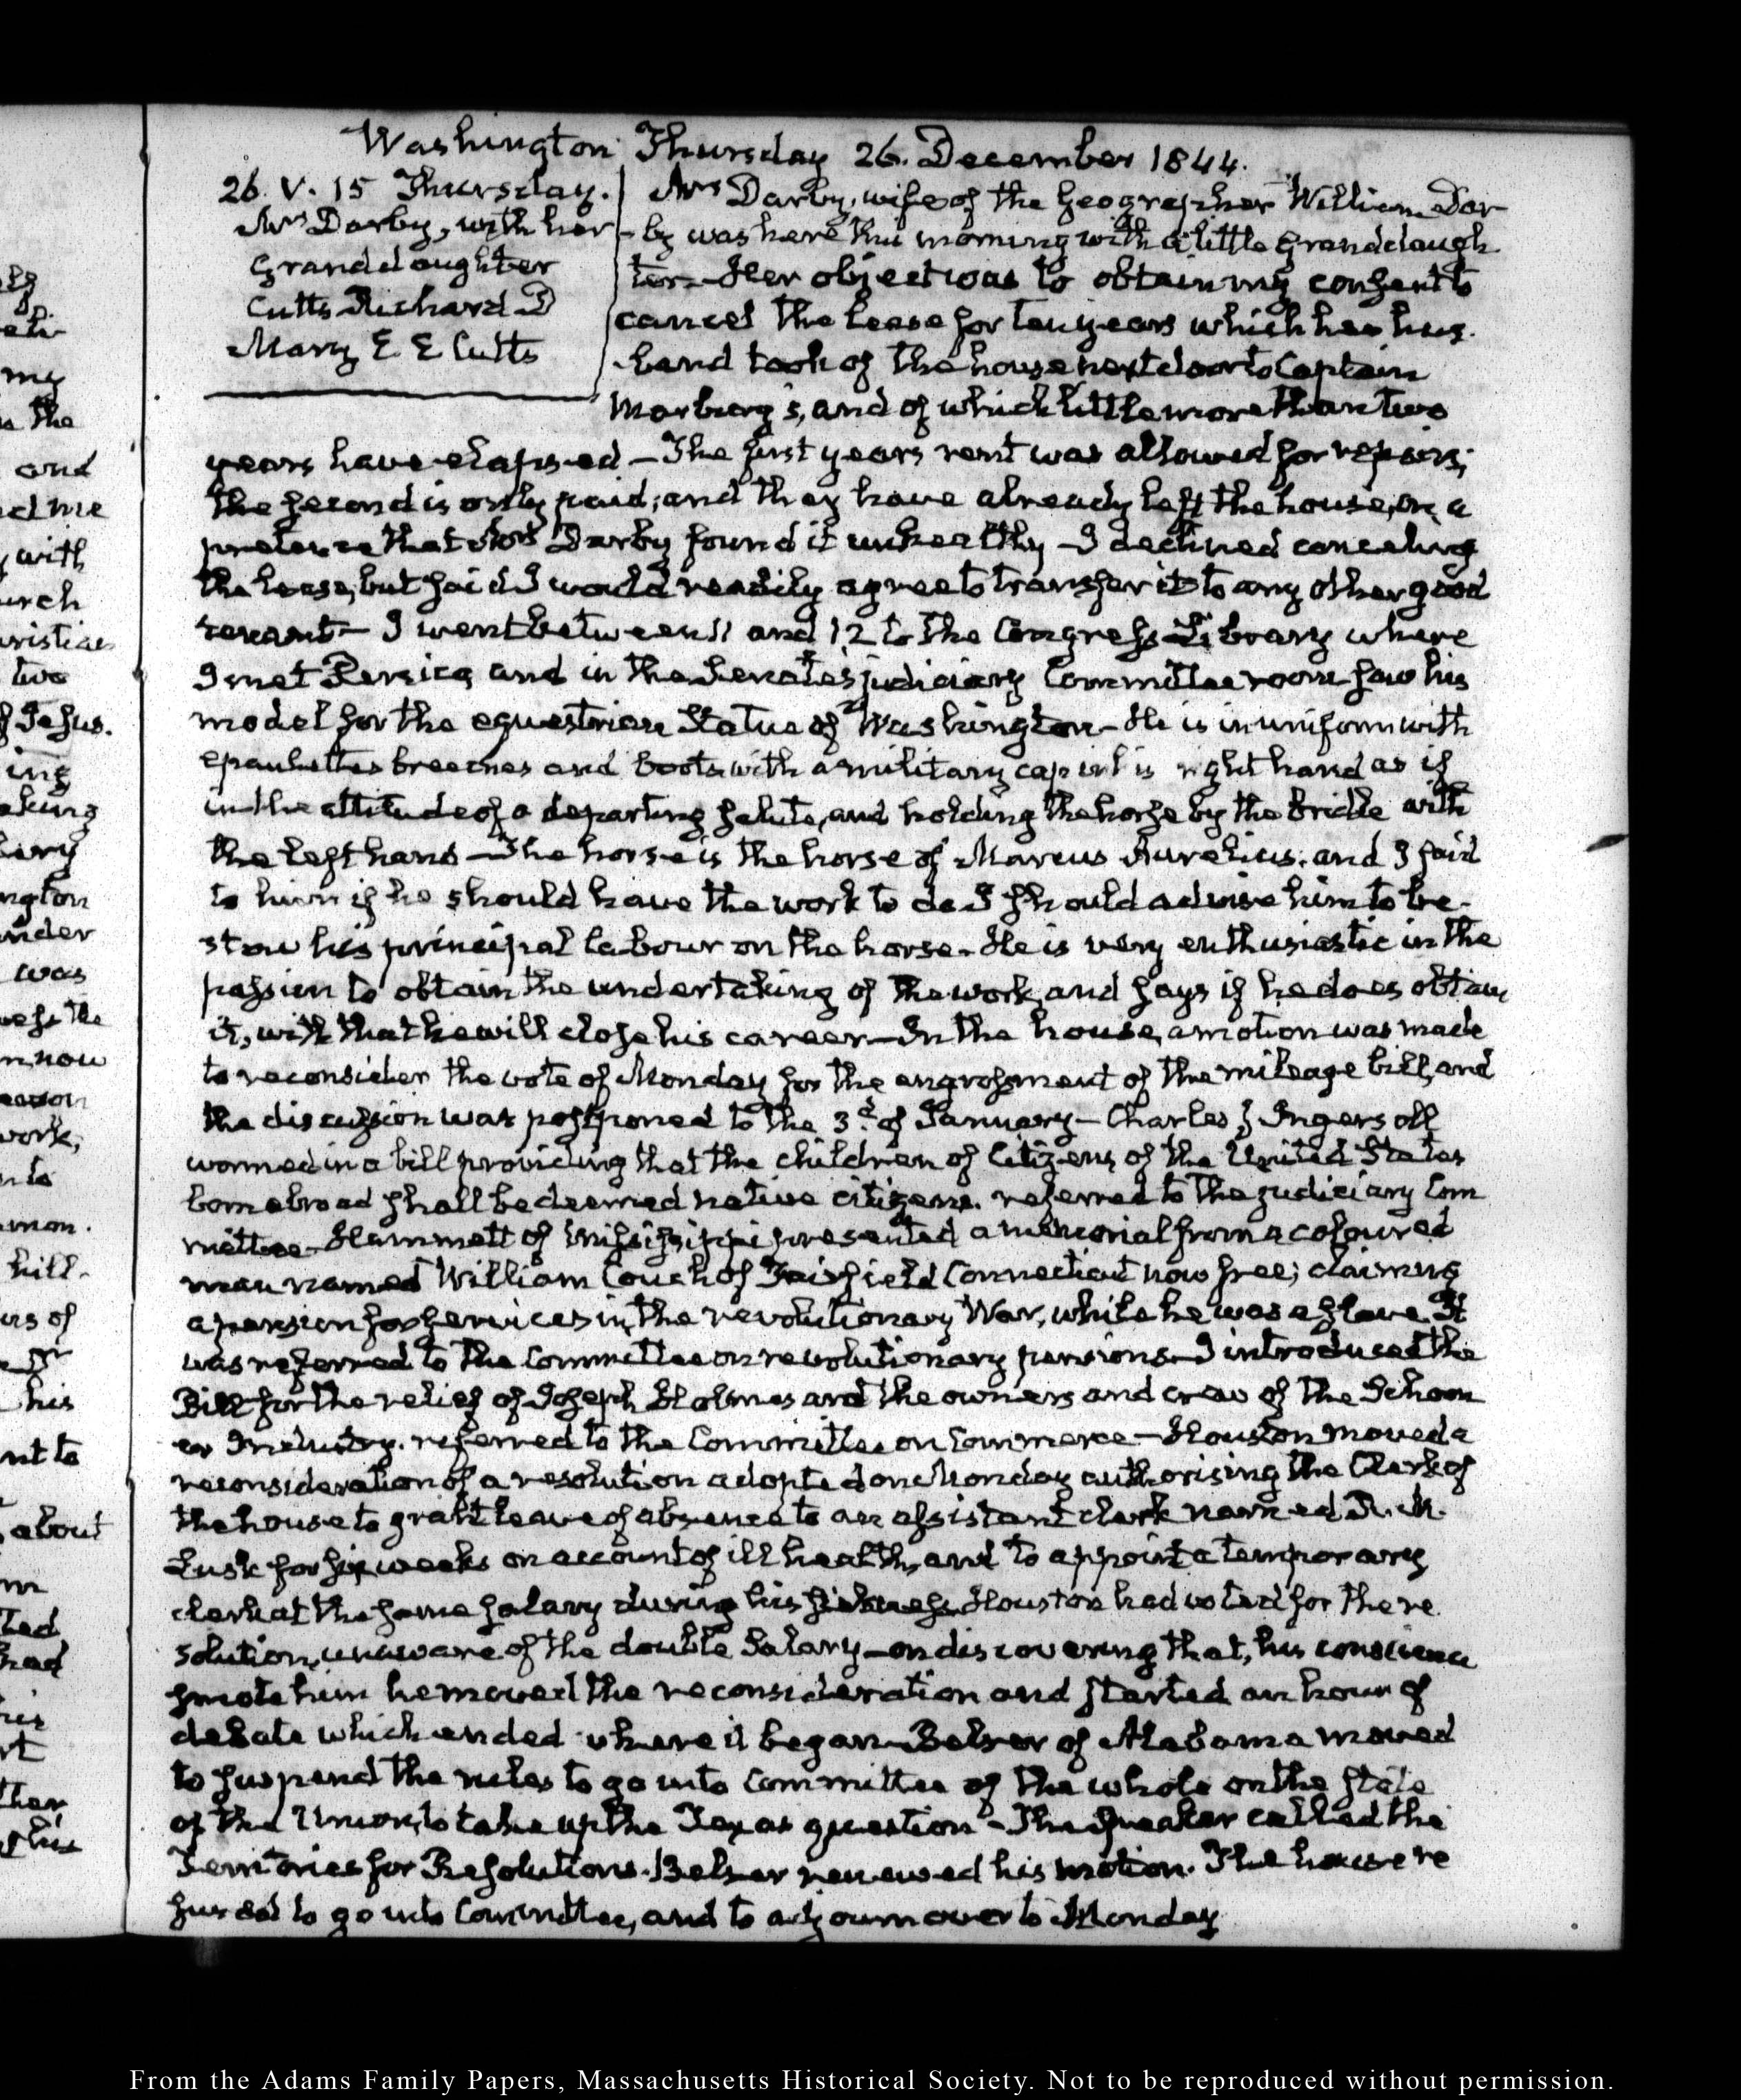 Washington Thursday 26. December 1844.
26. V. 15 Thursday.
Mrs Darby, with her
Granddaughter
Cutts Richard D
Mary E E Cutts
Mrs Darby, wife of the Geographer William Dar
by was here this morning with a little Grandдaugh
ter— Her object was to obtain my consent to
cancel the lease for ten years which her hus
band took of the house next door to Captain
Marbury's, and of which little more than two
years have elapsed — The first years rent was allowed for repairs;
the second is only paid; and they have already left the house, on a
pretence that Mrs Darby found it unhealthy — I declined canceling
the lease, but said I would readily agree to transfer it to any other good
tenant — I went between 11 and 12 to the Congress Library where
I met Persico, and in the Senate's judiciary Committee room saw his
model for the equestrian Statue of Washington — He is in uniform with
epaulettes breeches and boots with a military cap in his right hand as if
in the attitude of a departing salute, and holding the horse by the bridle with
the left hand — The horse is the horse of Marcus Aurelius; and I said
to him if he should have the work to do I should advise him to be
stow his principal labour on the horse. He is very enthusiastic in the
passion to obtain the undertaking of the work, and says if he does obtain
it, with that he will close his career — In the house, a motion was made
to reconsider the vote of Monday for the engrossment of the mileage bill, and
the discussion was postponed to the 3d. of January — Charles J Ingersoll
wormed in a bill providing that the children of Citizens of the United States
born abroad shall be deemed native citizens. referred to the judiciary Com
mittee — Hammett of Mississippi presented a memorial from a coloured
man named William Couch of Fairfield Connecticut now free; claiming
a pension for services in the revolutionary War, while he was a slave. It
was referred to the Committee on revolutionary pensions — I introduced the
Bill for the relief of Joseph Holmes and the owners and crew of the Schoon
er Industry. referred to the Committee on Commerce — Houston moved a
reconsideration of a resolution adopted on Monday authorising the Clerk of
the house to grant leave of absence to an assistant clerk named
Lusk for six weeks on account of ill health, and to appoint a temporary
clerk at the same salary during his sickness. Houston had voted for the re
solution, unaware of the double salary — on discovering that, his conscience
smote him he moved the reconsideration and started an hour of
debate which ended where it began — Belser of Alabama moved
to suspend the rules to go into Committee of the whole on the State
of the Union, to take up the Texas question — The Speaker called the
Territories for Resolutions. Belser renewed his motion. The house re
fused to go into Committee, and to adjourn over to Monday
From the Adams Family Papers, Massachusetts Historical Society. Not to be reproduced without permission.